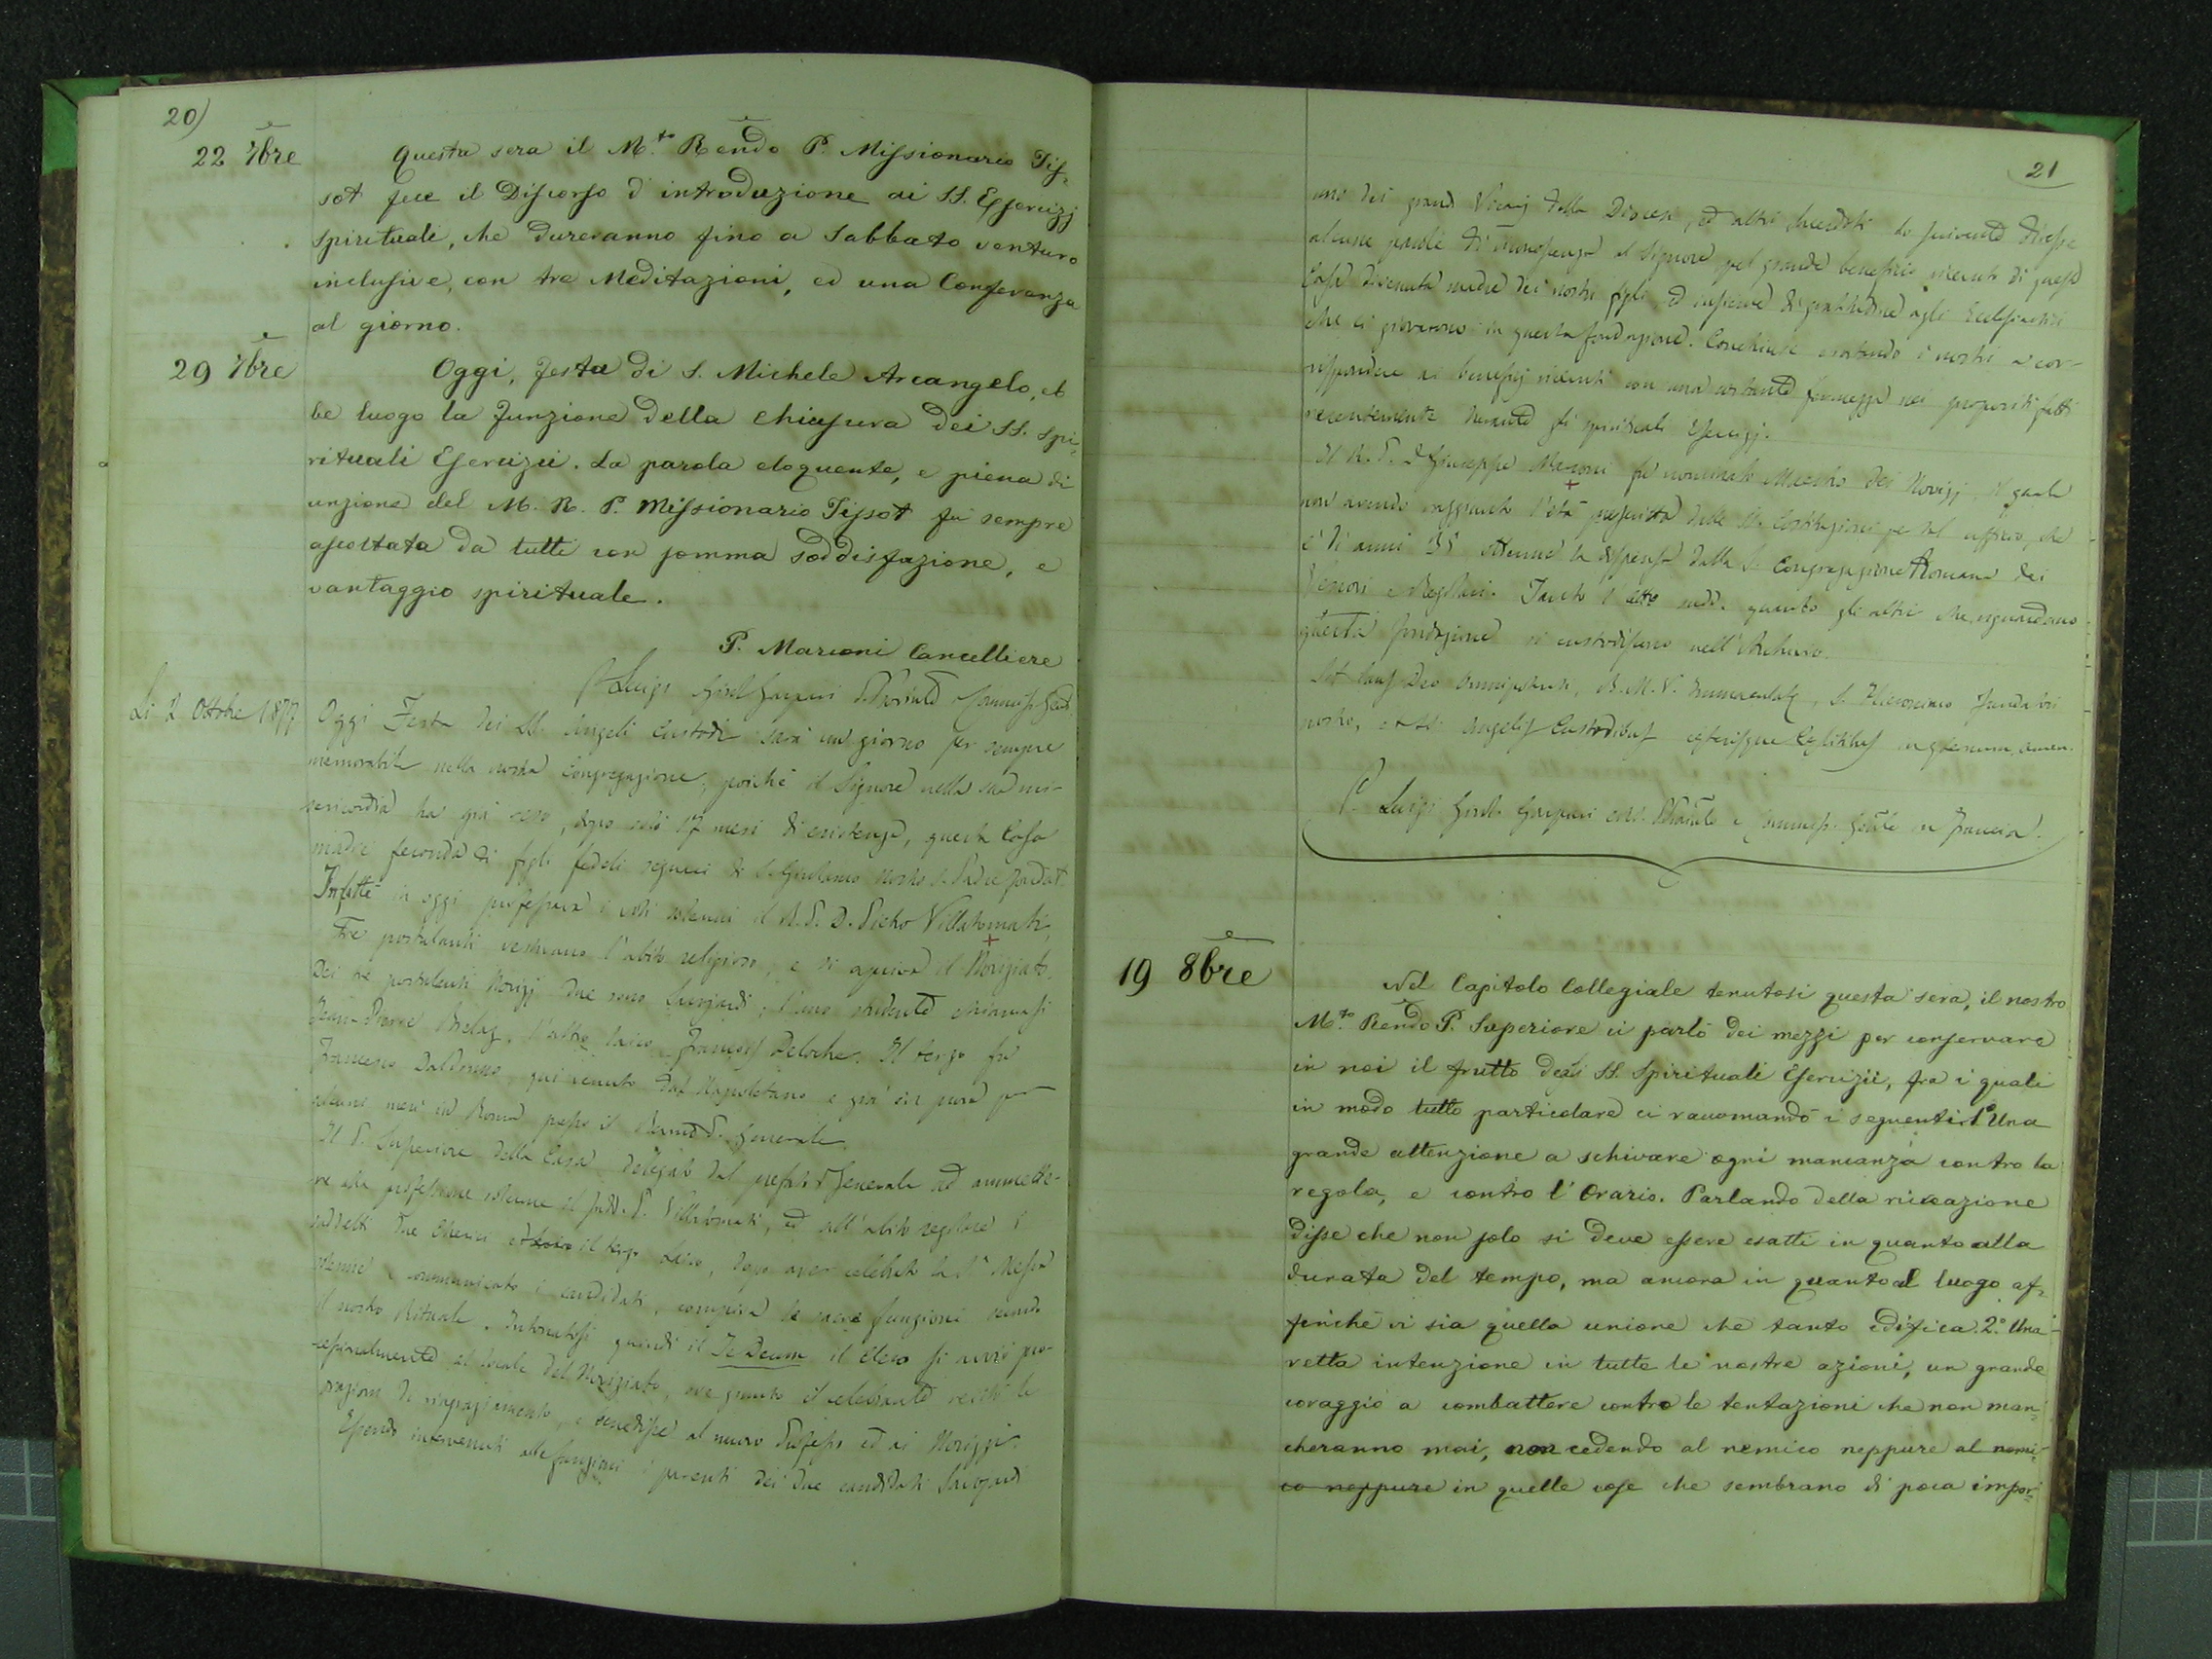 20)
22 7bre
Questa sera il M.to Rendo P. Missionario Tis=
sot fece il Discorso d'introduzione ai SS. Essercizj
Spirituali, che dureranno fino a Sabbato venturo
inclusive, con tre Meditazioni, ed una Conferenza
al giorno.
29 7bre
Oggi, festa di S. Michele Arcangelo, eb
be luogo la funzione della chiusura dei SS. Spi=
rituali Esercizii. La parola eloquente, e piena di
unzione del M. R. P. Missionario Tissot fù sempre
ascoltata da tutti con somma soddisfazione, e
vantaggio spirituale.
P. Marconi Cancelliere
P. Luigi Girol. Gaspari
Li 2 Ottobre 1877
Oggi Festa dei SS. Angeli Custodi sarà un giorno per sempre
memorabile nella nostra Congregazione, poichè il Signore nella sua mi-
sericordia ha già reso, dopo soli 17 mesi di esistenza, questa Casa
madre feconda di figli fedeli seguaci di S. Girolamo nostro S. Padre fondat.
Infatti in oggi professava i voti solenni il R. P. D. Pietro
Tre postulanti vestivano l'abito religioso, e si apriva il Noviziato.
Dei tre postulanti Novizj due sono Savojardi, l'uno studente chiamasi
Jean-Pierre l'altro laico François Deloche. Il terzo fu
Francesco qui venuto dal Napoletano e già in prova per
alcuni mesi in Roma presso il P. Generale.
Il P. Superiore della Casa delegato dal prefato P. Generale ad ammette-
re alla professione solenne il sudd. P. ed all'abito regolare i
suddetti due Chierici ed il terzo Laico, dopo aver celebrata la S. Messa
solenne e communicato i candidati, compiva le sacre funzioni secondo
il nostro Rituale. Intonatosi quindi il Te Deum il clero si avviò pro-
cessionalmente al locale del Noviziato, ove giunto il celebrante recitò le
orazioni di ringraziamento, e benedisse al nuovo Professo ed ai Novizzi.
Essendo intervenuti alle funzioni i parenti dei due candidati Savojardi
21
uno dei grandi Vicarj della Diocesi, ed altri Sacerdoti lo scrivente diresse
alcune parole di riconoscenza al Signore pel grande beneficio ricevuto di questa
Casa divenuta madre dei nostri figli, ed insieme di gratitudine agli Ecclesiastici
che ci giovarono in questa fondazione. Conchiuse esortando i nostri a cor-
rispondere ai beneficj ricevuti con una costante fermezza nei propositi fatti
recentemente durante gli spirituali Esercizj.
Il R. P. D. Giuseppe Marconi fu nominato Maestro dei Novizj, il quale
non avendo raggiunto l'età prescritta dalle SS. Costituzioni per tal uffizio, che
è di anni 35 ottenne la dispensa dalla S. Congregazione Romana dei
Vescovi e Regolari. Tanto l'atto sudd. quanto gli altri che riguardano
questa fondazione si custodiscono nell'Archivio.
Sit laus Deo Omnipotenti, B. M. V. Immaculatae, S. Hieronimo fundatori
nostro, et SS. Angelis Custodibus caeterisque Caelitibus in aeternum, amen.
P. Luigi Girol. Gaspari in Francia.
19 8bre
Nel Capitolo Collegiale tenutosi questa sera, il nostro
M.to Rendo P. Superiore ci parlò dei mezzi per conservare
in noi il frutto degli SS. Spirituali Esercizii, fra i quali
in modo tutto particolare ci raccomandò i seguenti: 1° Una
grande attenzione a schivare ogni mancanza contro la
regola, e contro l'Orario. Parlando della ricreazione
disse che non solo si deve essere esatti in quanto alla
durata del tempo, ma ancora in quanto al luogo af=
finchè vi sia quella unione che tanto edifica. 2.° Una
retta intenzione in tutte le nostre azioni, un grande
coraggio a combattere contro le tentazioni che non man=
cheranno mai, non cedendo al nemico neppure al nemi=
co neppure in quelle cose che sembrano di poca impor=